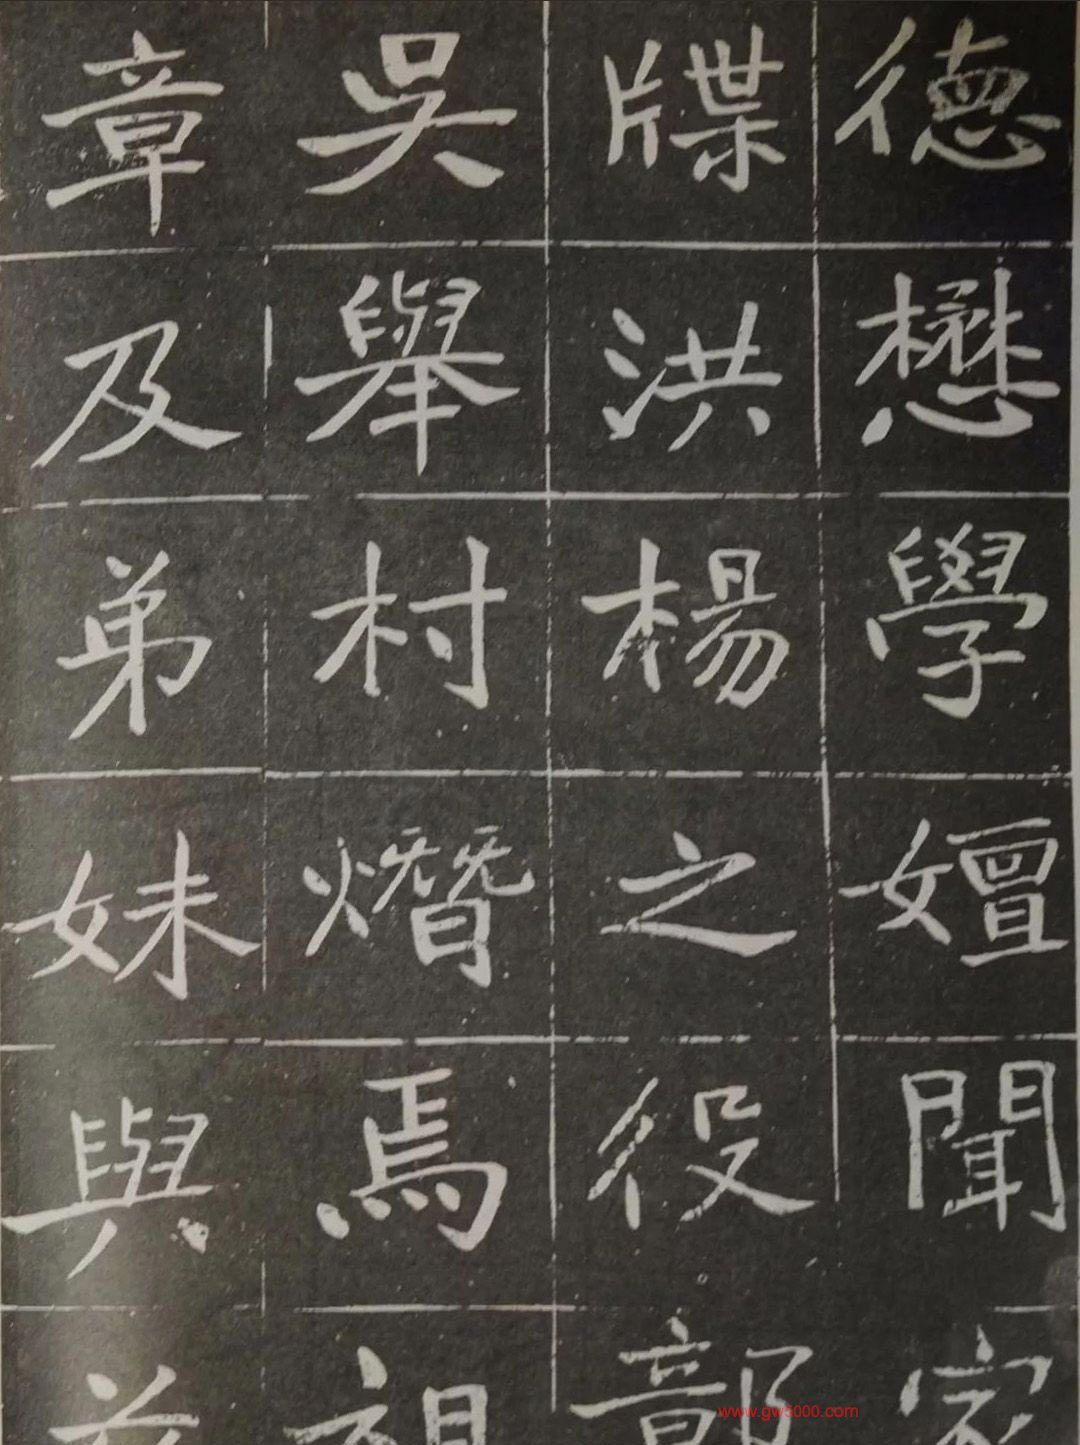 德懋學嬗聞家
牒洪楊之役部
吳舉村熸焉祖
章及弟妹與
www.gw5000.com